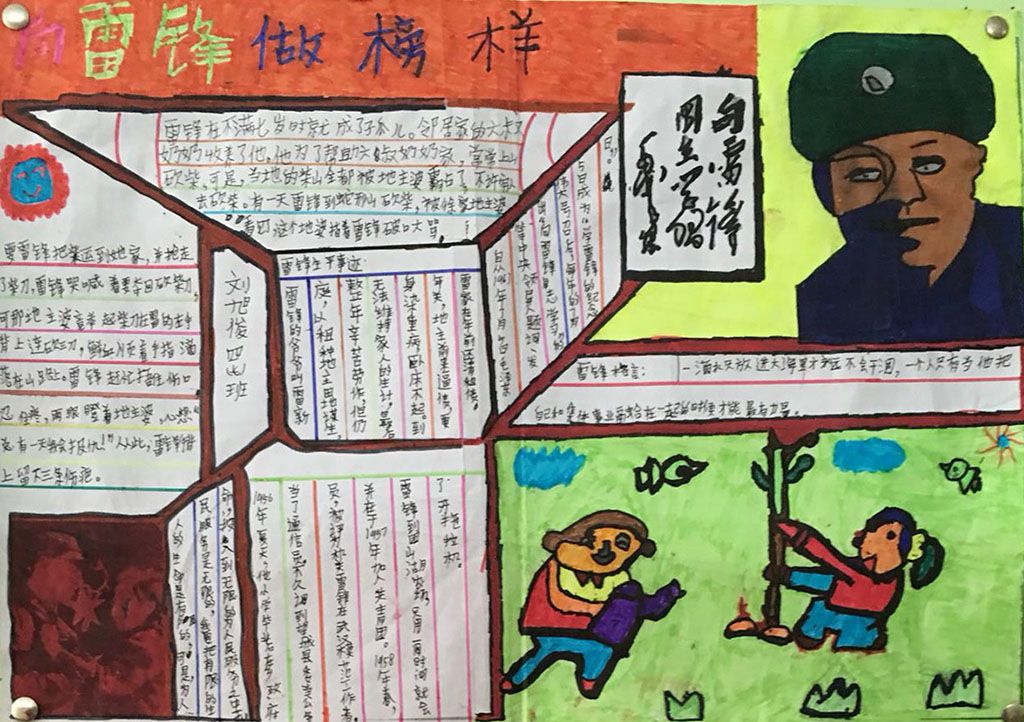 向雷锋做榜样
雷锋在不满七岁时就成了孤儿。邻居家的六叔
奶奶收养了他,他为了帮助六叔奶奶家,常常上山
砍柴,可是,当地的柴山全都被地主婆霸占了,不许
去砍柴。有一天雷锋到蛇形山砍柴,被徐家地主婆
看四这个地婆指着雷锋破口大骂,
要雷锋把柴运到她家,并抢走
了柴刀,雷锋哭喊着要夺回砍柴刀,
可那地主婆竟举起柴刀在雷的左手
背上连砍三刀,鲜血顺着手指滴
落在山路上。雷锋赶忙捂住伤口
总有一天我会报仇!"从此,雷锋
上留下三条伤疤。
刘旭俊四七班
雷锋生平事迹:
雷锋的爷爷叫雷新
庭,以租种地主田地谋生,
整年辛苦劳作,但仍
无法维持家人的生计,最后
身染重病卧床不起。到
年关,地主前来逼债,要
雷家在年前还清租债。
向雷锋
同志学习
毛泽东
雷锋格言:一滴水只放进大海里才永远不会干涸,一个人只有当他把
自己和集体事业融合在一起的时候才能最有力量。
了开拖拉机。
雷锋到团山湖农场,只用一周时间就会
并在于1957年加入共青团。1958年春,
员,被评为机关雷锋在武汉模范工作者。
当了通信员,不久调到望城县委当公务
1956年夏天,他小学毕业后在乡政府
命,投入到无限的为人民服务之中
民服务是无限的,我要把有限的生
人的生命是有限的,可是,为人